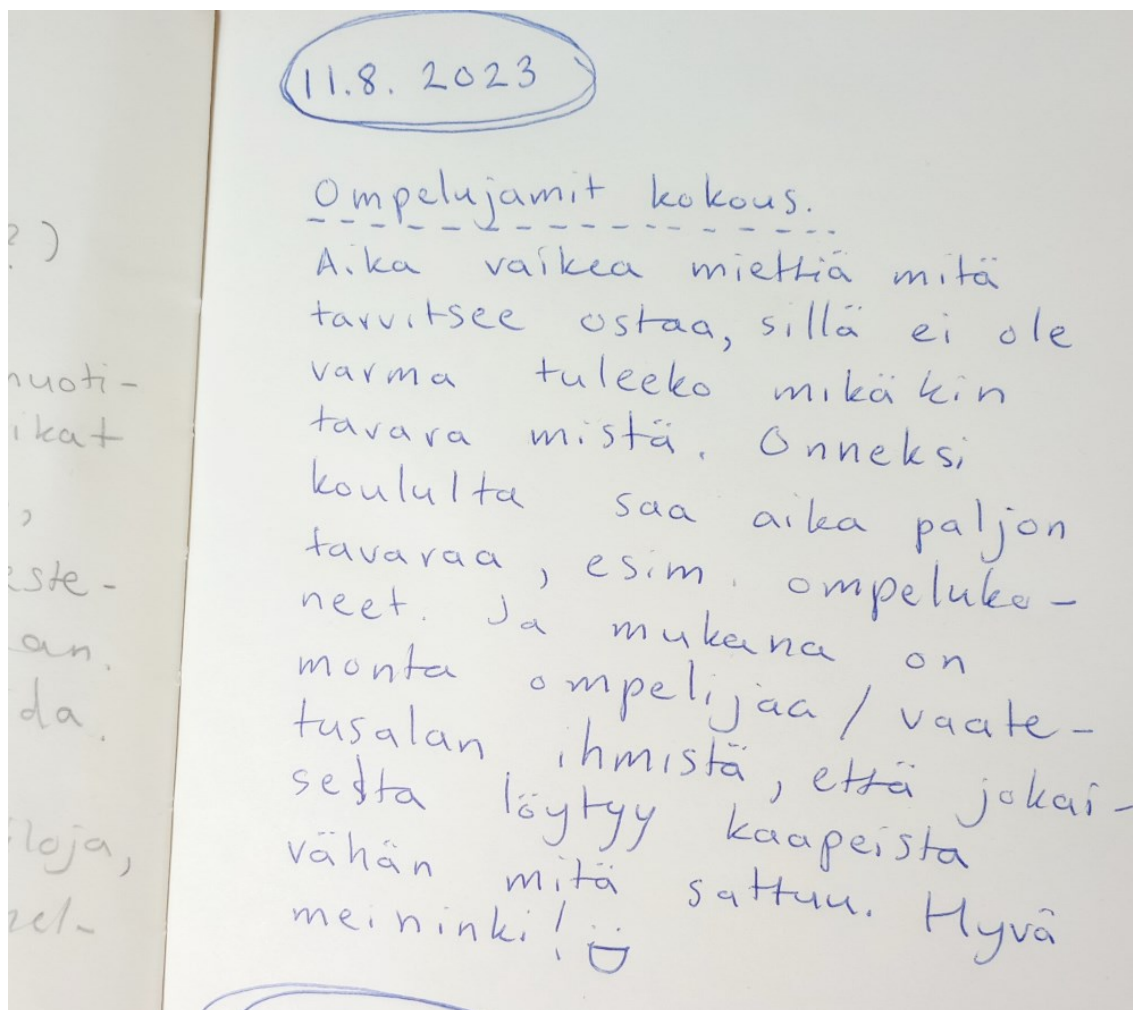 ?)
nuoti-
ikat
,
este-
an.
da.
iloja,
11.8. 2023
Ompelujamit kokous.
Aika vaikea miettiä mitä
tarvitsee ostaa, sillä ei ole
varma tuleeko mikäkin
tavara mistä. Onneksi
koululta saa aika paljon
tavaraa, esim. ompeluko-
neet. Ja mukana on
monta ompelijaa / vaate-
tusalan ihmistä, että jokai-
sesta löytyy kaapeista
vähän mitä sattuu. Hyvä
meininki!